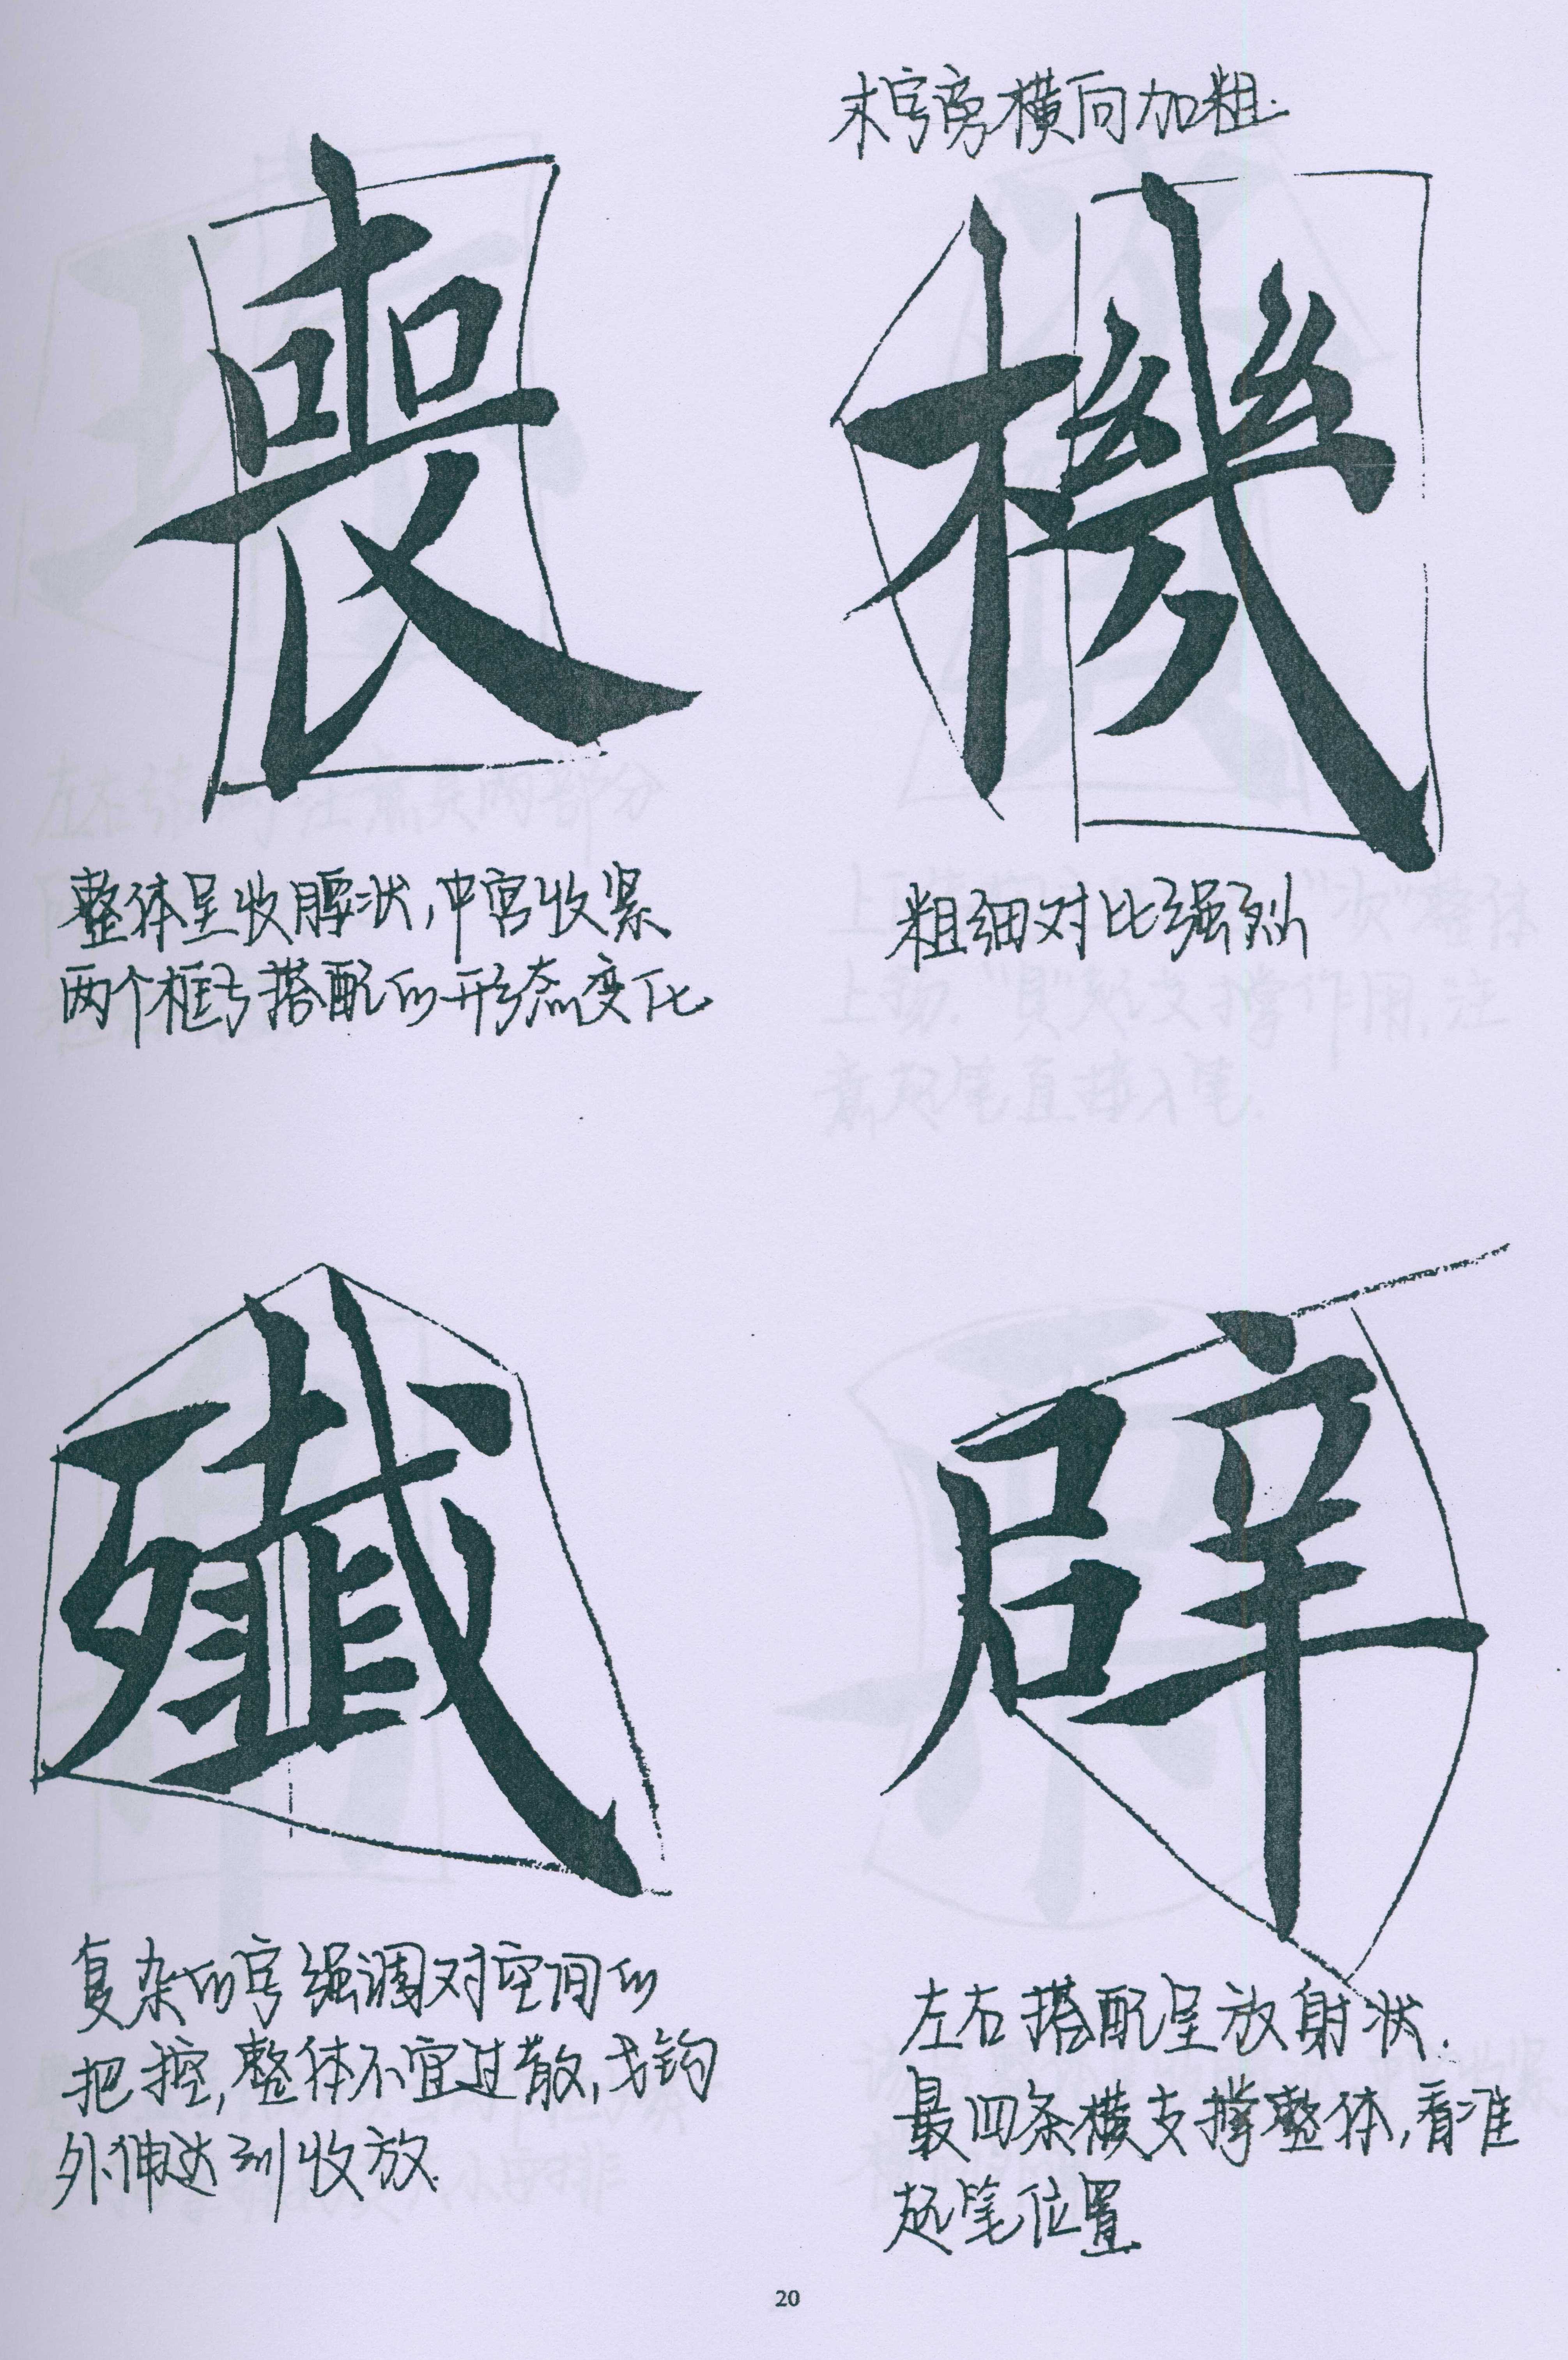 木字旁横向加粗.
喪 機
整体呈收腰状,中宫收紧
两个框与搭配的形态变化
粗细对比强烈
殲 辟
复杂的字强调对空间的
把控,整体不宜过散,戈钩
外伸达到收放.
左右搭配呈放射状.
最四条横支撑整体,看准
起笔位置.
20